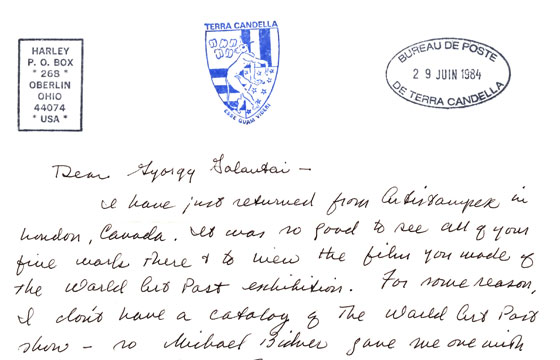 HARLEY
P. O. BOX
* 268 *
OBERLIN
OHIO
44074
* USA *
TERRA CANDELLA
ESSE QUAM VIDERI
BUREAU DE POSTE
29 JUIN 1984
DE TERRA CANDELLA
Dear Gyorgy Galantai —
I have just returned from Artistampex in
London, Canada. It was so good to see all of your
fine work there & to view the film you made of
the World Art Post exhibition. For some reason,
I don't have a catalog of The World Art Post
show — so Michael Bidner gave me one with